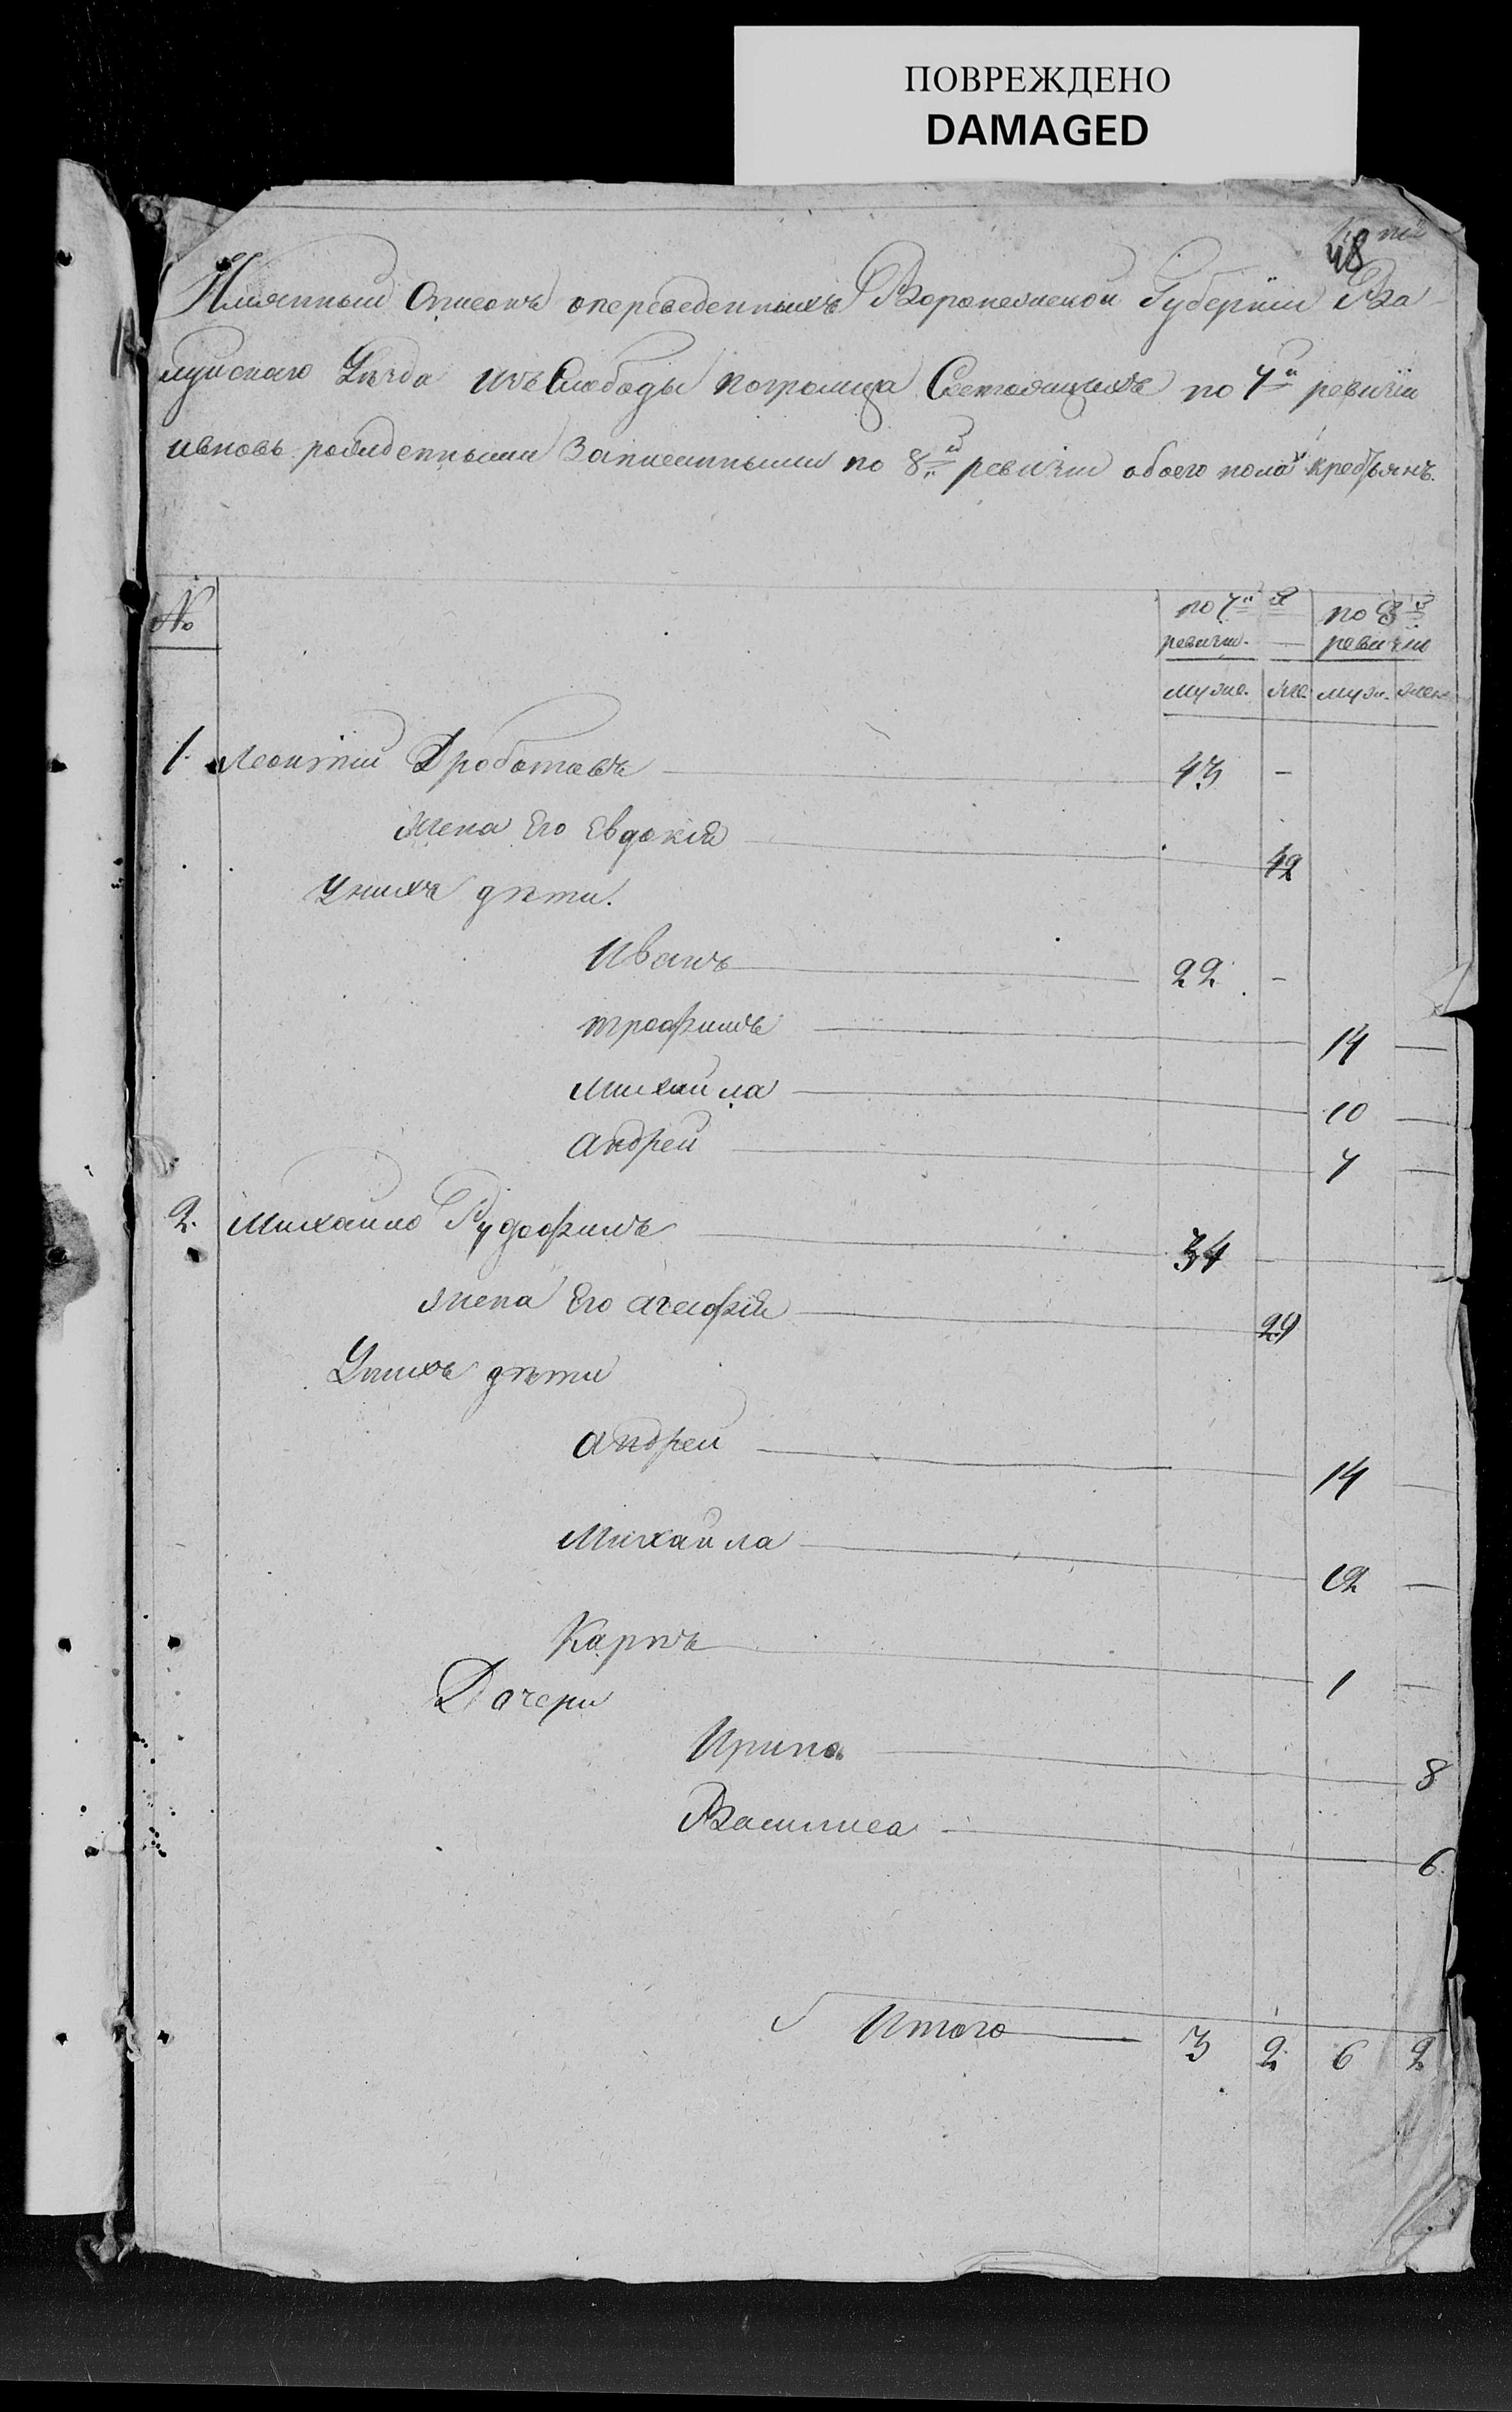 ПОВРЕЖДЕНО
DAMAGED
48
Имянный Списокъ опереведенныхъ Воронежской Губернии Ва
луйскаго Уѣзда изъ Слободы погромца Состоящихъ по 7й ревизіи
ивновь рожденными Записанными по 8й ревизіи обоего пола крестьянъ.
№ по 7й по 8й
ревизіи. ревизію
муже. же. муж. жен
1. Леонтий Дроботовъ 43 -
жена Его Евдокія 42
Унихъ дѣти.
Иванъ 22 -
трофимъ 14
михаила 10
андрей 7
2. михаило Рудофимъ 34
жена Его агафія 29
Унихъ дѣти
андрей 14
Михаила 12
Карпъ 1
Дочери
Ирина 8
Василиса 6
Итого 3 2 6 2